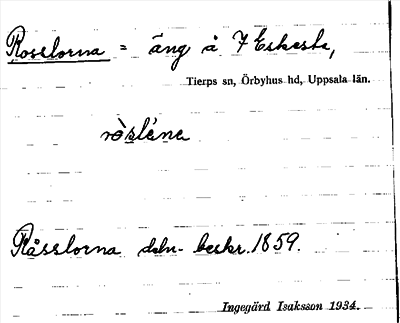 Rosslorna = äng å 7 Eskesta,
Tierps sn, Örbyhus hd, Uppsala län.
ròslána
Råsslorna deln- beskr. 1859.
Ingegärd Isaksson 1934.